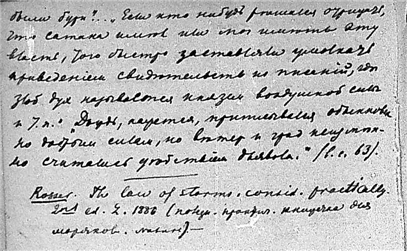 были бури"... "Если кто нибудь решался отрицать,
что сатана имел или мог иметь эту
власть, того быстро заставляли умолкать
приведением свидетельств из писаний, где
злой дух назывался князем воздушной силы
и т.п." "Дождь, кажется, приписывался обыкновен
но добрым силам, но ветер и град неизмен-
но считались убийствам дьявола." (l.c. 63).
Rosser. The law of storms. consid. practically.
2nd ed. L. 1886 (попул. практич. книжечка для
моряков.